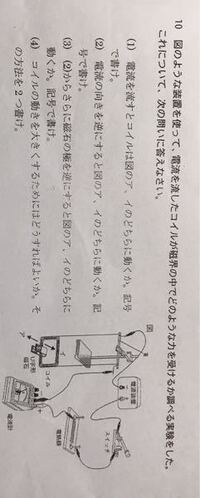 10 図のような装置を使って、電流を流したコイルが磁界の中でどのような力を受けるか調べる実験をした。
これについて、次の問いに答えなさい。
(1) 電流を流すとコイルは図のア、イのどちらに動くか。記号
で書け。
(2) 電流の向きを逆にすると図のア、イのどちらに動くか。記
号で書け。
(3) (2)からさらに磁石の極を逆にすると図のア、イのどちらに
動くか。記号で書け。
(4) コイルの動きを大きくするためにはどうすればよいか。そ
の方法を2つ書け。
図
電源装置
スイッチ
電熱器
コイル
U字形
磁石
ア
イ
電流計